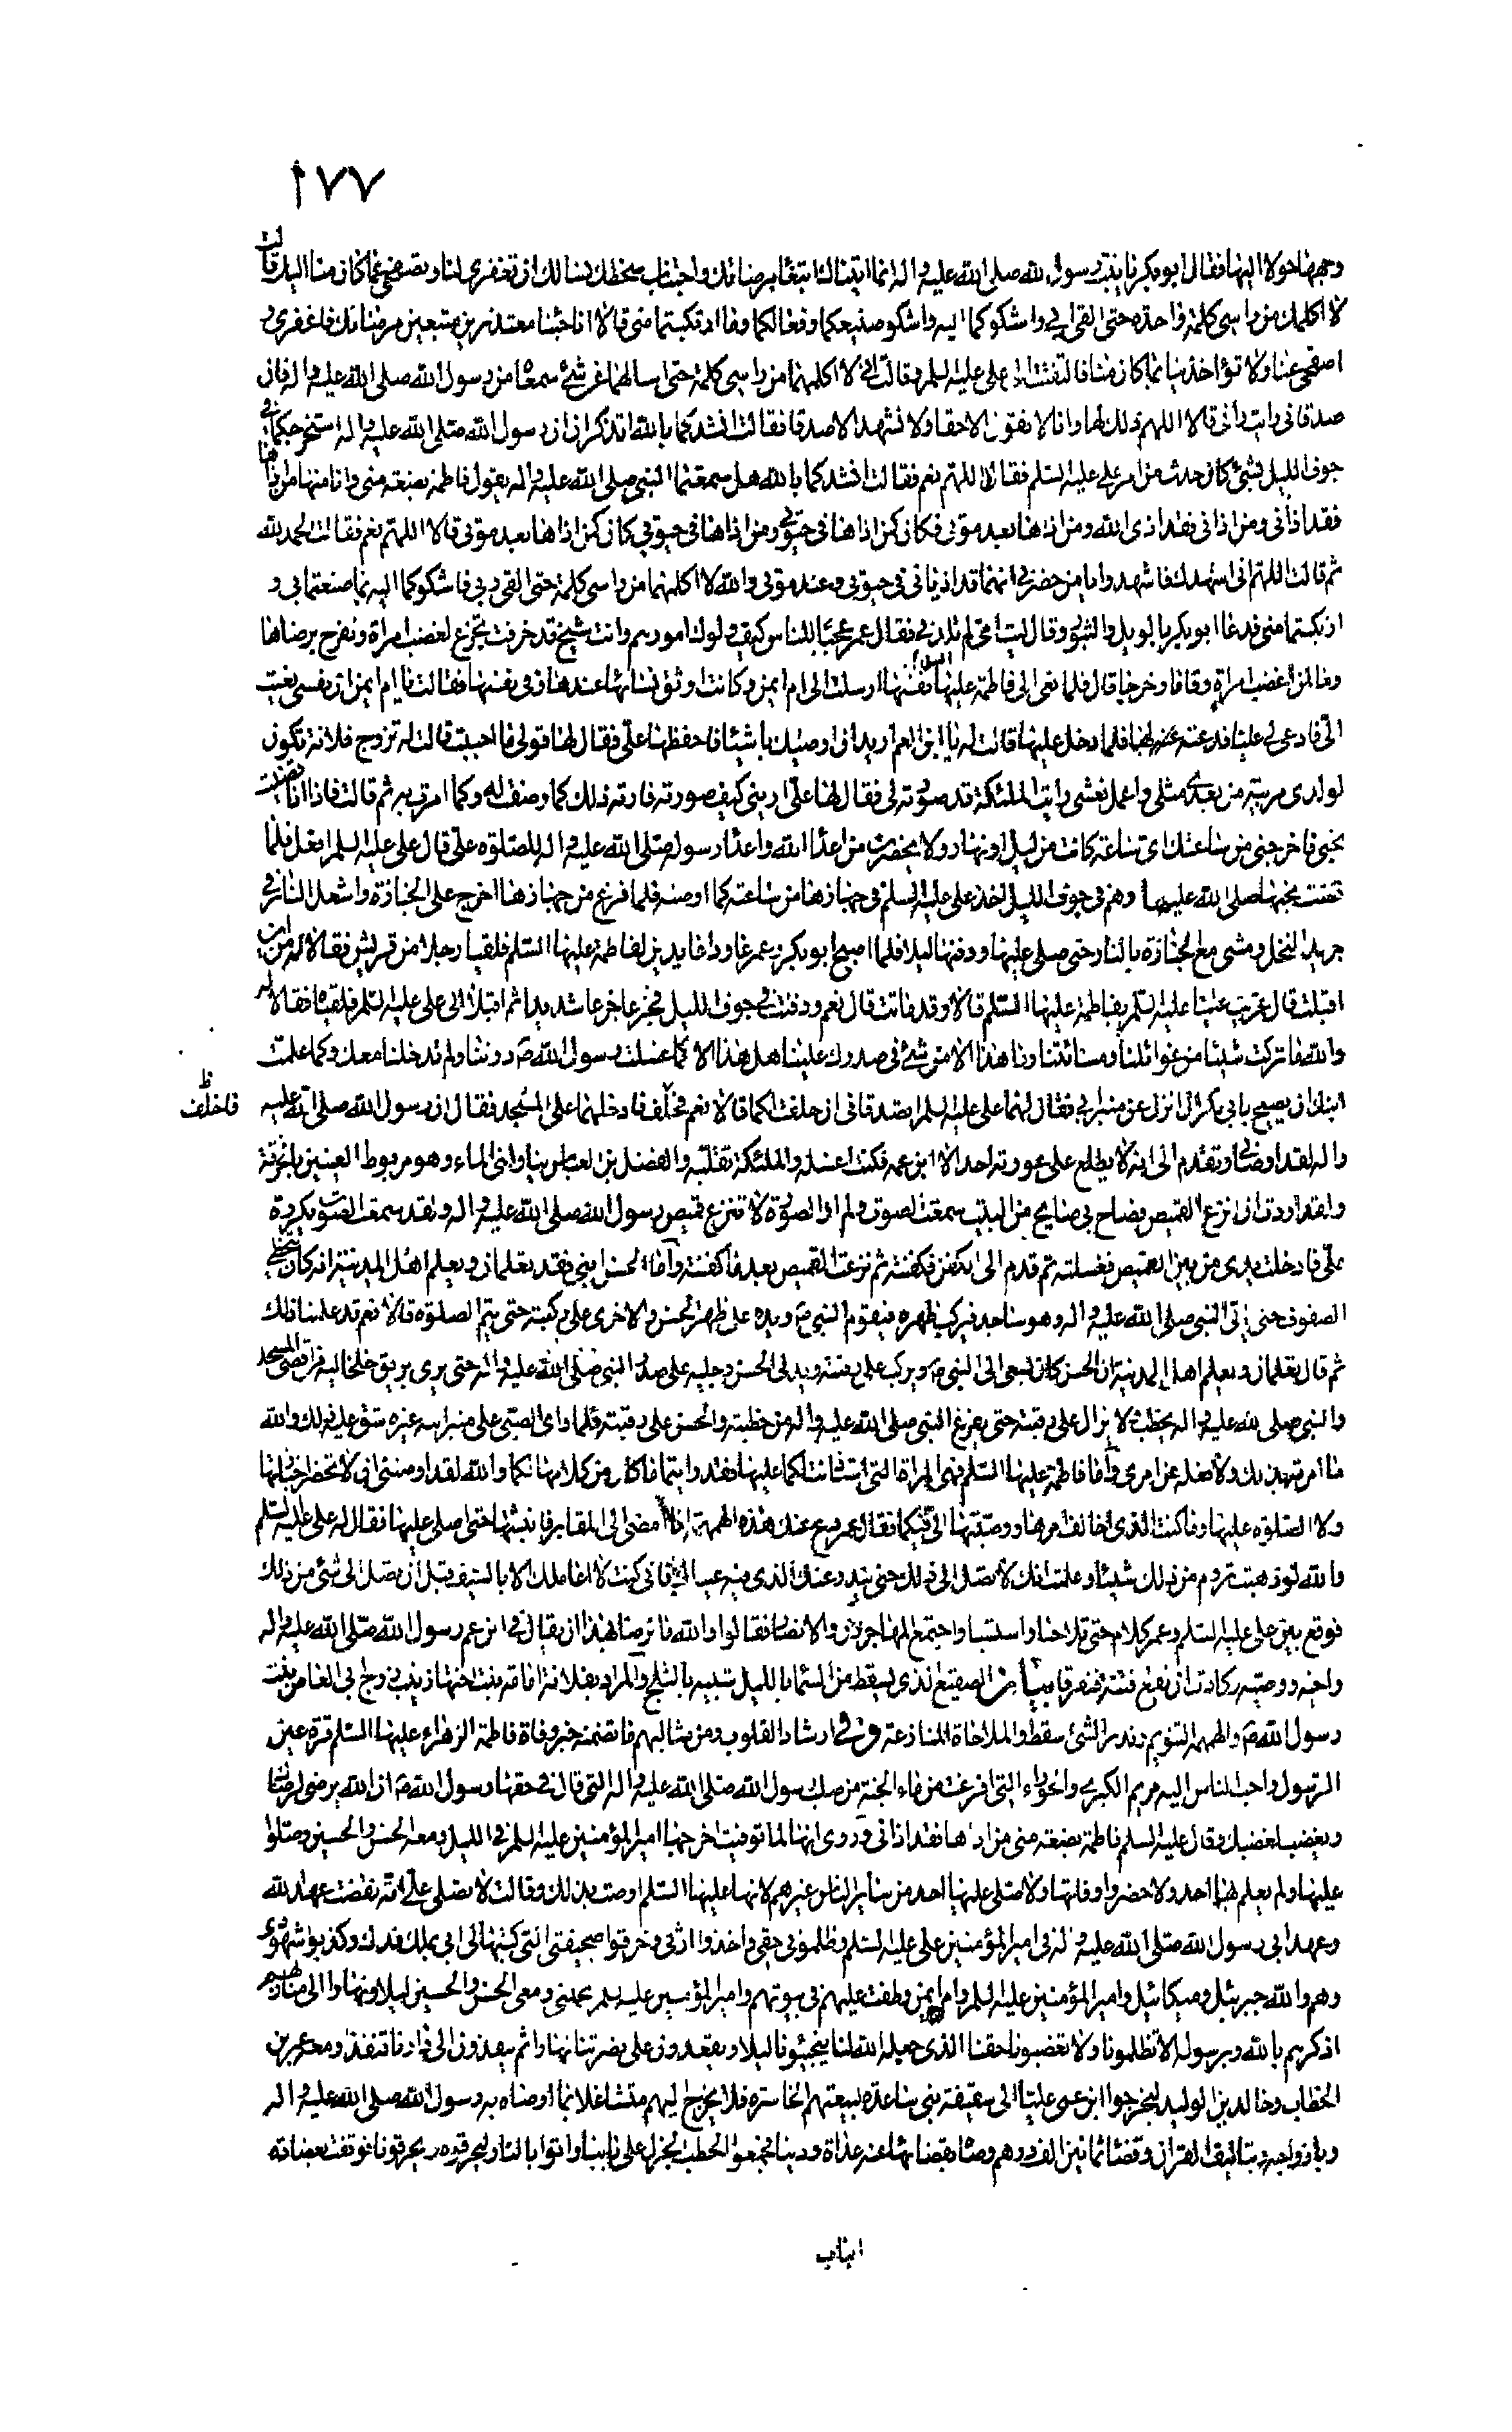 ١٧٧
وجهها حولا اليها فقال ابو بكر يا بنت رسول الله صلى الله عليه واله انما اتيناك ابتغاء مرضاتك واجتناب سخطك نسالك ان تغفري لنا وتصفحي عما كان منا اليك قالت
لا اكلمك من راسي كلمة واحدة حتى القى ابي واشكوكما اليه واشكو صنيعكما وفعالكما وما ارتكبتما مني قالا انا جئنا معتذرين مبتغين مرضاتك فاغفري و
اصفحي عنا ولا تؤاخذينا بما كان منا فالتفتت الى علي عليه السلم وقالت اني لا اكلمهما من راسي كلمة حتى اسالهما عن شئ سمعاه من رسول الله صلى الله عليه واله فان
صدقاني رايت رايي قالا اللهم ذلك لها وانا لا نقول الا حقا ولا نشهد الا صدقا فقالت انشدكما بالله اتذكران ان رسول الله صلى الله عليه واله استخرجكما في
جوف الليل لشئ كان حدث من امر علي عليه السلم فقالا اللهم نعم فقالت انشدكما بالله هل سمعتما النبي صلى الله عليه واله يقول فاطمة بضعة مني وانا منها من اذاها
فقد اذاني ومن اذاني فقد اذى الله ومن اذاها بعد موتي فكان كمن اذاها في حيوتي ومن اذاها في حيوتي كان كمن اذاها بعد موتي قالا اللهم نعم فقالت الحمد لله
ثم قالت اللهم اني اشهدك فاشهدوا يا من حضرني انهما قد اذياني في حيوتي وعند موتي والله لا اكلمهما من راسي كلمة حتى القى ربي فاشكوكما اليه بما صنعتما بي و
ارتكبتما مني فدعا ابو بكر بالويل والثبور وقال ليت امي لم تلدني فقال عمر عجبا للناس كيف ولوك امورهم وانت شيخ قد خرفت تجزع لغضب امراة وتفرح برضاها
وما لمن اغضب امراة وقاما وخرجا قال فلما نعي الى فاطمة عليها السلم نفسها ارسلت الى ام ايمن وكانت اوثق نسائها عندها وفي نفسها فقالت يا ام ايمن ان نفسي نعيت
الي فادعي لي عليا فدعته لها فلما دخل عليها قالت له يا ابن العم اريد ان اوصيك باشياء فاحفظها علي فقال لها قولي ما احببت قالت له تزوج فلانة تكون
لولدي مربية من بعدي مثلي واعمل نعشي رايت الملئكة قد صورته لي فقال لها علي اريني كيف صورته فارته ذلك كما وصفت له وكما امرت به ثم قالت فاذا انا قضيت
نحبي فاخرجني من ساعتك اي ساعة كانت من ليل او نهار ولا يحضرن من اعداء الله واعداء رسوله صلى الله عليه واله للصلوة علي قال علي عليه السلم افعل فلما
قضت نحبها صلى الله عليها وهم في جوف الليل اخذ علي عليه السلم في جهازها من ساعته كما اوصته فلما فرغ من جهازها اخرج علي الجنازة واشعل النار في
جريد النخل ومشى مع الجنازة بالنار حتى صلى عليها ودفنها ليلا فلما اصبح ابو بكر وعمر عاودا عايدين لفاطمة عليها السلم فلقيا رجلا من قريش فقالا له من اين
اقبلت قال عزيت عليا عليه السلم بفاطمة عليها السلم قالا وقد ماتت قال نعم ودفنت في جوف الليل فجزعا جزعا شديدا ثم اقبلا الى علي عليه السلم فلقياه فقالا له
والله ما تركت شيئا من غوائلنا ومسائتنا وما هذا الا من شئ في صدرك علينا هل هذا الا كما غسلت رسول الله ص دوننا ولم تدخلنا معك وكما علمت
ابنك ان يصيح بابي بكر ان انزل عن منبر ابي فقال لهما علي عليه السلم اتصدقاني ان حلفت لكما قالا نعم فحلف فادخلهما على المسجد فقال ان رسول الله صلى الله عليه
فاحلف ظ
واله لقد اوصاني وتقدم الي انه لا يطلع على عورته احد الا ابن عمه فكنت اغسله والملئكة تقلبه والفضل بن العباس يناولني الماء وهو مربوط العينين بالخرقة
ولقد اردت ان انزع القميص فصاح بي صايح من البيت سمعت الصوت ولم ار الصورة لا تنزع قميص رسول الله صلى الله عليه واله ولقد سمعت الصوت يكرره
علي فادخلت يدي من بين القميص فغسلته ثم قدم الي الكفن فكفنته ثم نزعت القميص بعد ما كفنته واما الحسن ابني فقد تعلمان ويعلم اهل المدينة انه كان يتخطى
الصفوف حتى ياتي النبي صلى الله عليه واله وهو ساجد فيركب ظهره فيقوم النبي ص ويده على ظهر الحسن والاخرى على ركبته حتى يتم الصلوة قالا نعم قد علمنا ذلك
ثم قال تعلمان ويعلم اهل المدينة ان الحسن كان يسعى الى النبي ص ويركب على رقبته ويدلي الحسن رجليه على صدر النبي صلى الله عليه واله حتى يرى بريق خلخاليه من اقصى المسجد
والنبي صلى الله عليه واله يخطب ولا يزال على رقبته حتى يفرغ النبي صلى الله عليه واله من خطبته والحسن على رقبته فلما راى الصبي على منبر ابيه غيره شق عليه ذلك والله
ما امرته بذلك ولا فعله عن امري واما فاطمة عليها السلم فهي المراة التي استاذنت لكما عليها فقد رايتما ما كان من كلامها لكما والله لقد اوصتني ان لا تحضرا جنازتها
ولا الصلوة عليها وما كنت الذي اخالف امرها ووصيتها الي فيكما فقال عمر دع عنك هذه الهمهمة انا امضي الى المقابر فانبشها حتى اصلي عليها فقال له علي عليه السلم
والله لو ذهبت تروم من ذلك شيئا وعلمت انك لا تصل الى ذلك حتى يندر عنك الذي فيه عيناك فاني كنت لا اعاملك الا بالسيف قبل ان تصل الى شئ من ذلك
فوقع بين علي عليه السلم وعمر كلام حتى تلاحيا واستبا واجتمع المهاجرون والانصار فقالوا والله ما نرضى بهذا ان يقال في ابن عم رسول الله صلى الله عليه واله
واخيه ووصيه وكادت ان تقع فتنة فتفرقا بيان الصقيع الذي يسقط من السماء بالليل شبيه بالثلج والمراد بفلانة امامة بنت اختها زينب زوج ابي العاص بنت
رسول الله ص والهمهمة التنويم وندر الشئ سقط والملاحاة المنازعة وفي ارشاد القلوب ومن مثالبهم ما تضمنه خبر وفاة فاطمة الزهراء عليها السلم قرة عين
الرسول واحب الناس اليه مريم الكبرى والحوراء التي افرغت من ماء الجنة من صلب رسول الله صلى الله عليه واله التي قال في حقها رسول الله ص ان الله يرضى لرضاك
ويغضب لغضبك وقال عليه السلم فاطمة بضعة مني من اذاها فقد اذاني وروي انها لما توفيت اخرجها امير المؤمنين عليه السلم في الليل ومعه الحسن والحسين وصلوا
عليها ولم يعلم بها احد ولا حضروا وفاتها ولا صلى عليها احد من سائر الناس غيرهم لانها عليها السلم اوصت بذلك وقالت لا يصلي علي امة نقضت عهد الله
وعهد ابي رسول الله صلى الله عليه واله في امير المؤمنين علي عليه السلم وظلموني حقي واخذوا ارثي وخرقوا صحيفتي التي كتبها لي ابي بملك فدك وكذبوا شهودي
وهم والله جبرئيل وميكائيل وامير المؤمنين عليه السلم وام ايمن وطفت عليهم في بيوتهم وامير المؤمنين عليه السلم يحملني ومعي الحسن والحسين ليلا ونهارا الى منازلهم
اذكرهم بالله وبرسوله الا تظلمونا ولا تغصبونا حقنا الذي جعله الله لنا فيجيبونا ليلا ويقعدون على نصرتنا نهارا ثم ينفذون الى دارنا قنفذا ومعه عمر بن
الخطاب وخالد بن الوليد ليخرجوا ابن عمي عليا الى سقيفة بني ساعدة لبيعتهم الخاسرة فلا يخرج اليهم متشاغلا بما اوصاه به رسول الله صلى الله عليه واله
وبازواجه وبتاليف القران وقضاء ثمانين الف درهم وصاه بقضائها عنه عداة ودينا فجمعوا الحطب الجزل على بابنا واتوا بالنار ليحرقوه ويحرقونا فوقفت بعضادة
الباب